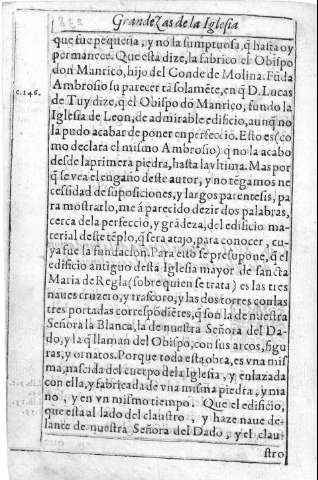 Grandezas de la Iglesia
que fue pequeña, y no la sumptuosa, q̃ hasta oy
permanece. Que esta dize, la fabrico el Obispo
don Manrico, hijo del Conde de Molina. Fũda
Ambrosio su parecer tã solamẽte, en q̃ D. Lucas
c. 146. de Tuy dize, q̃ el Obispo dõ Manrico, fundo la
Iglesia de Leon, de admirable edificio, aunq̃ no
la pudo acabar de poner en perfecciõ. Esto es (co
mo declara el mismo Ambrosio) q̃ no la acabo
desde la primera piedra, hasta la vltima. Mas por
q̃ se vea el engaño deste autor, y no tẽgamos ne
cessidad de suposiciones, y largos parentesis, pa
ra mostrarlo, me á parecido dezir dos palabras,
cerca de la perfecciõ, y grãdeza, del edificio ma-
terial deste tẽplo, q̃ sera atajo, para conocer, cu-
ya fue la fundacion. Para esto se presupone, q̃ el
edificio antiguo desta Iglesia mayor de sancta
Maria de Regla (sobre quien se trata) es las tres
naues cruzero, y trascoro, y las dos torres con las
tres portadas correspõdiẽtes, q̃ son la de nuestra
Señora la Blanca, la de nuestra Señora del Da-
do, y la q̃ llaman del Obispo, con sus arcos, figu-
ras, y ornatos. Porque toda esta obra, es vna mis
ma, nascida del cuerpo de la Iglesia, y enlazada
con ella, y fabricada de vna misma piedra, y ma
no, y en vn mismo tiempo. Que el edificio,
que esta al lado del claustro, y haze naue de-
lante de nuestra Señora del Dado, y el claui
stro